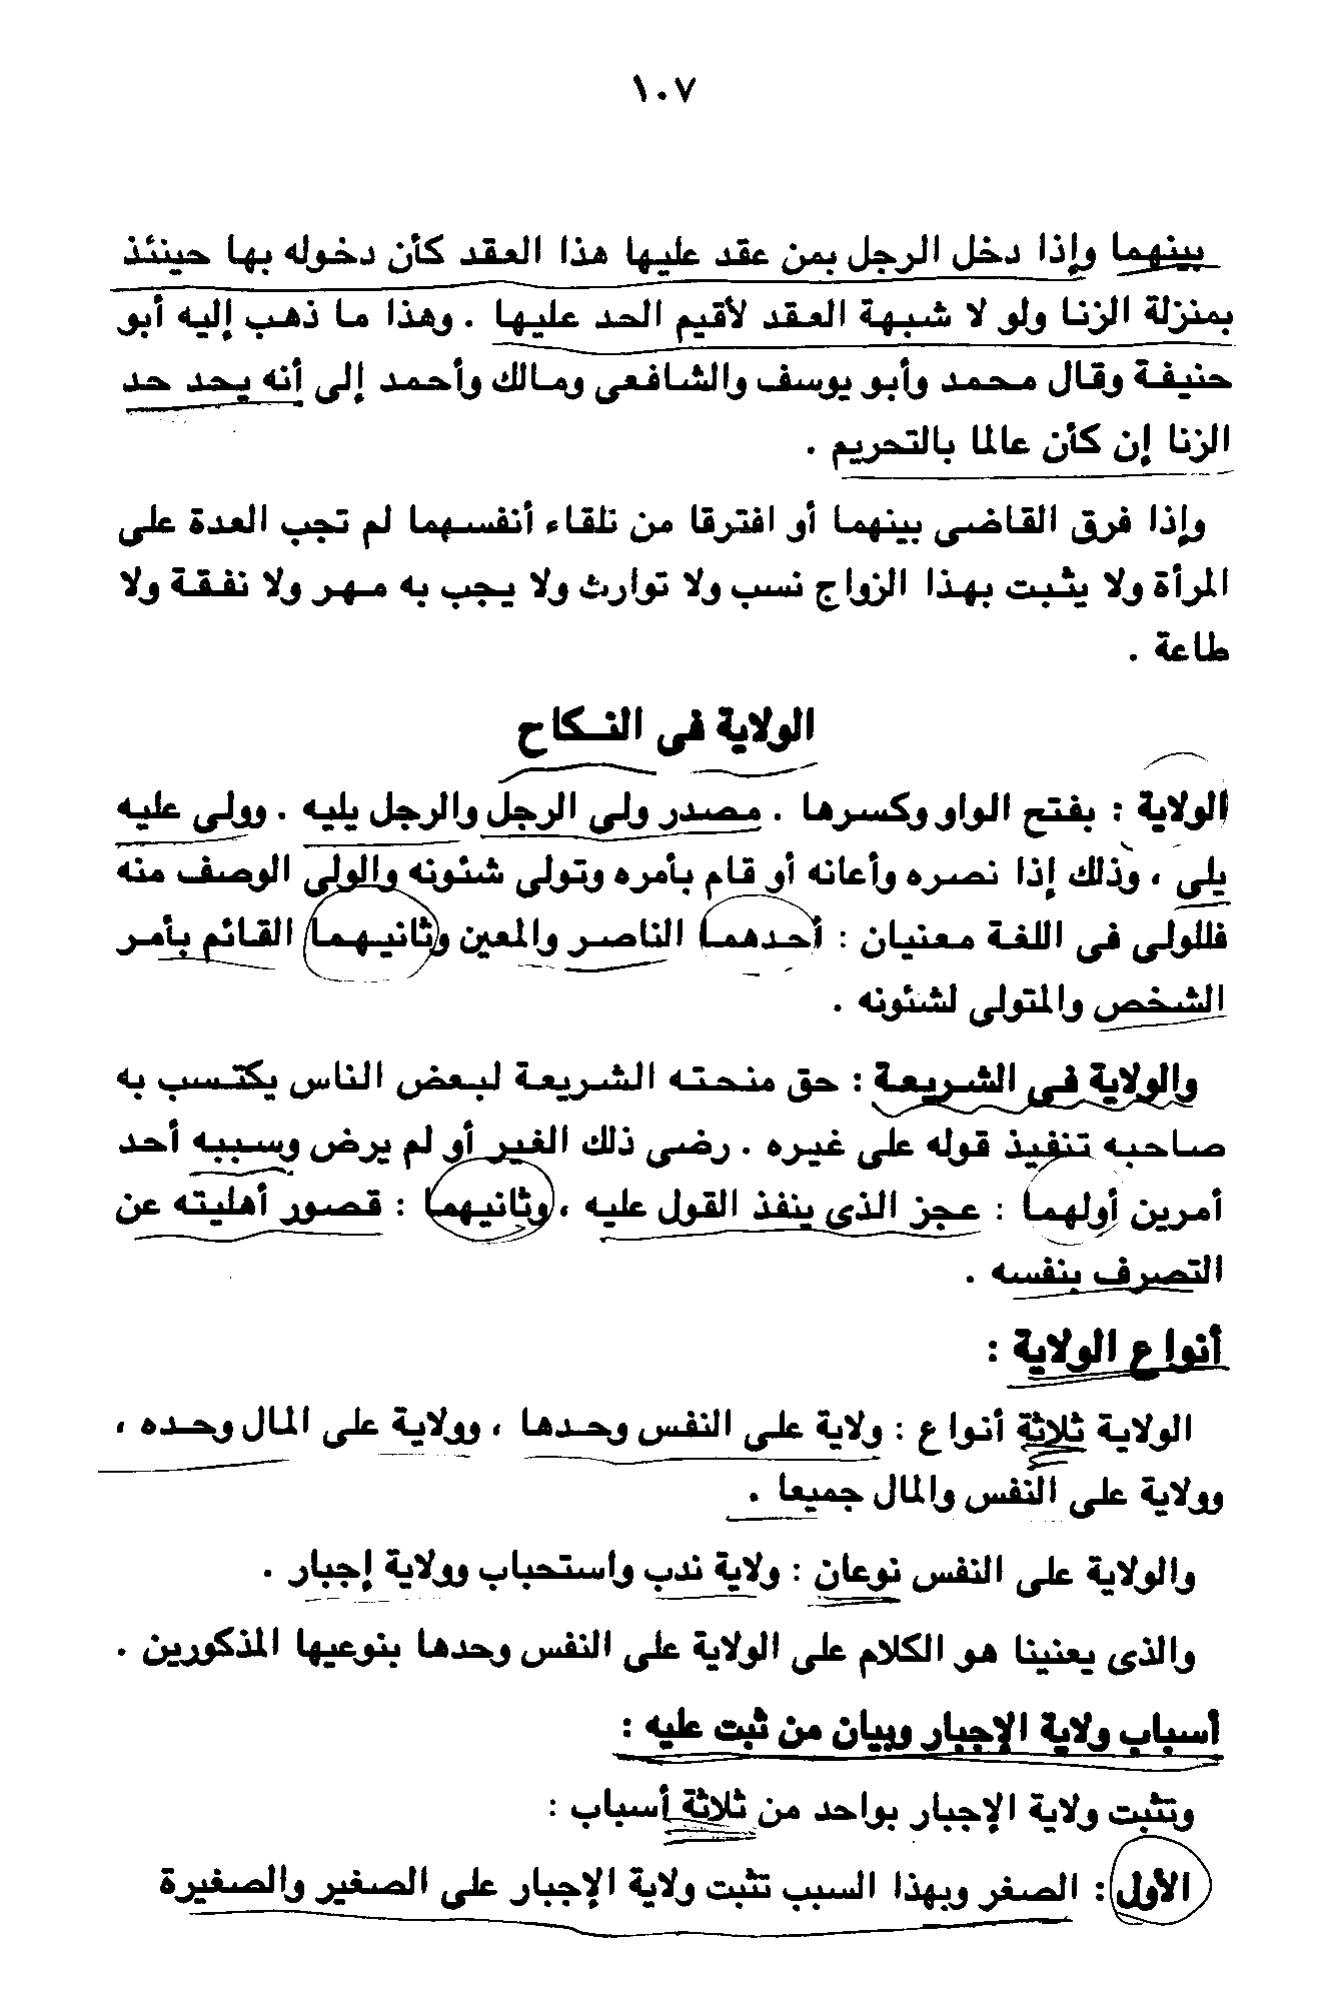 ١٠٧
بينهما وإذا دخل الرجل بمن عقد عليها هذا العقد كأن دخوله بها حينئذ
بمنزلة الزنا ولو لا شبهة العقد لأقيم الحد عليها . وهذا ما ذهب إليه أبو
حنيفة وقال محمد وأبو يوسف والشافعى ومالك وأحمد إلى أنه يحد حد
الزنا إن كأن عالما بالتحريم .
وإذا فرق القاضى بينهما أو افترقا من تلقاء أنفسهما لم تجب العدة على
المرأة ولا يثبت بهذا الزواج نسب ولا توارث ولا يجب به مهر ولا نفقة ولا
طاعة .
الولاية فى النكاح
الولاية : بفتح الواو وكسرها . مصدر ولى الرجل والرجل يليه . وولى عليه
يلى ، وذلك إذا نصره وأعانه أو قام بأمره وتولى شئونه والولى الوصف منه
فللولى فى اللغة معنيان : أحدهما الناصر والمعين وثانيهما القائم بأمر
الشخص والمتولى لشئونه .
والولاية فى الشريعة : حق منحته الشريعة لبعض الناس يكتسب به
صاحبه تنفيذ قوله على غيره . رضى ذلك الغير أو لم يرض وسببه أحد
أمرين أولهما : عجز الذى ينفذ القول عليه ، وثانيهما : قصور أهليته عن
التصرف بنفسه .
أنواع الولاية :
الولاية ثلاثة أنواع : ولاية على النفس وحدها ، وولاية على المال وحده ،
وولاية على النفس والمال جميعا .
والولاية على النفس نوعان : ولاية ندب واستحباب وولاية إجبار .
والذى يعنينا هو الكلام على الولاية على النفس وحدها بنوعيها المذكورين .
أسباب ولاية الإجبار وبيان من ثبت عليه :
وتثبت ولاية الإجبار بواحد من ثلاثة أسباب :
الأول : الصغر وبهذا السبب تثبت ولاية الإجبار على الصغير والصغيرة